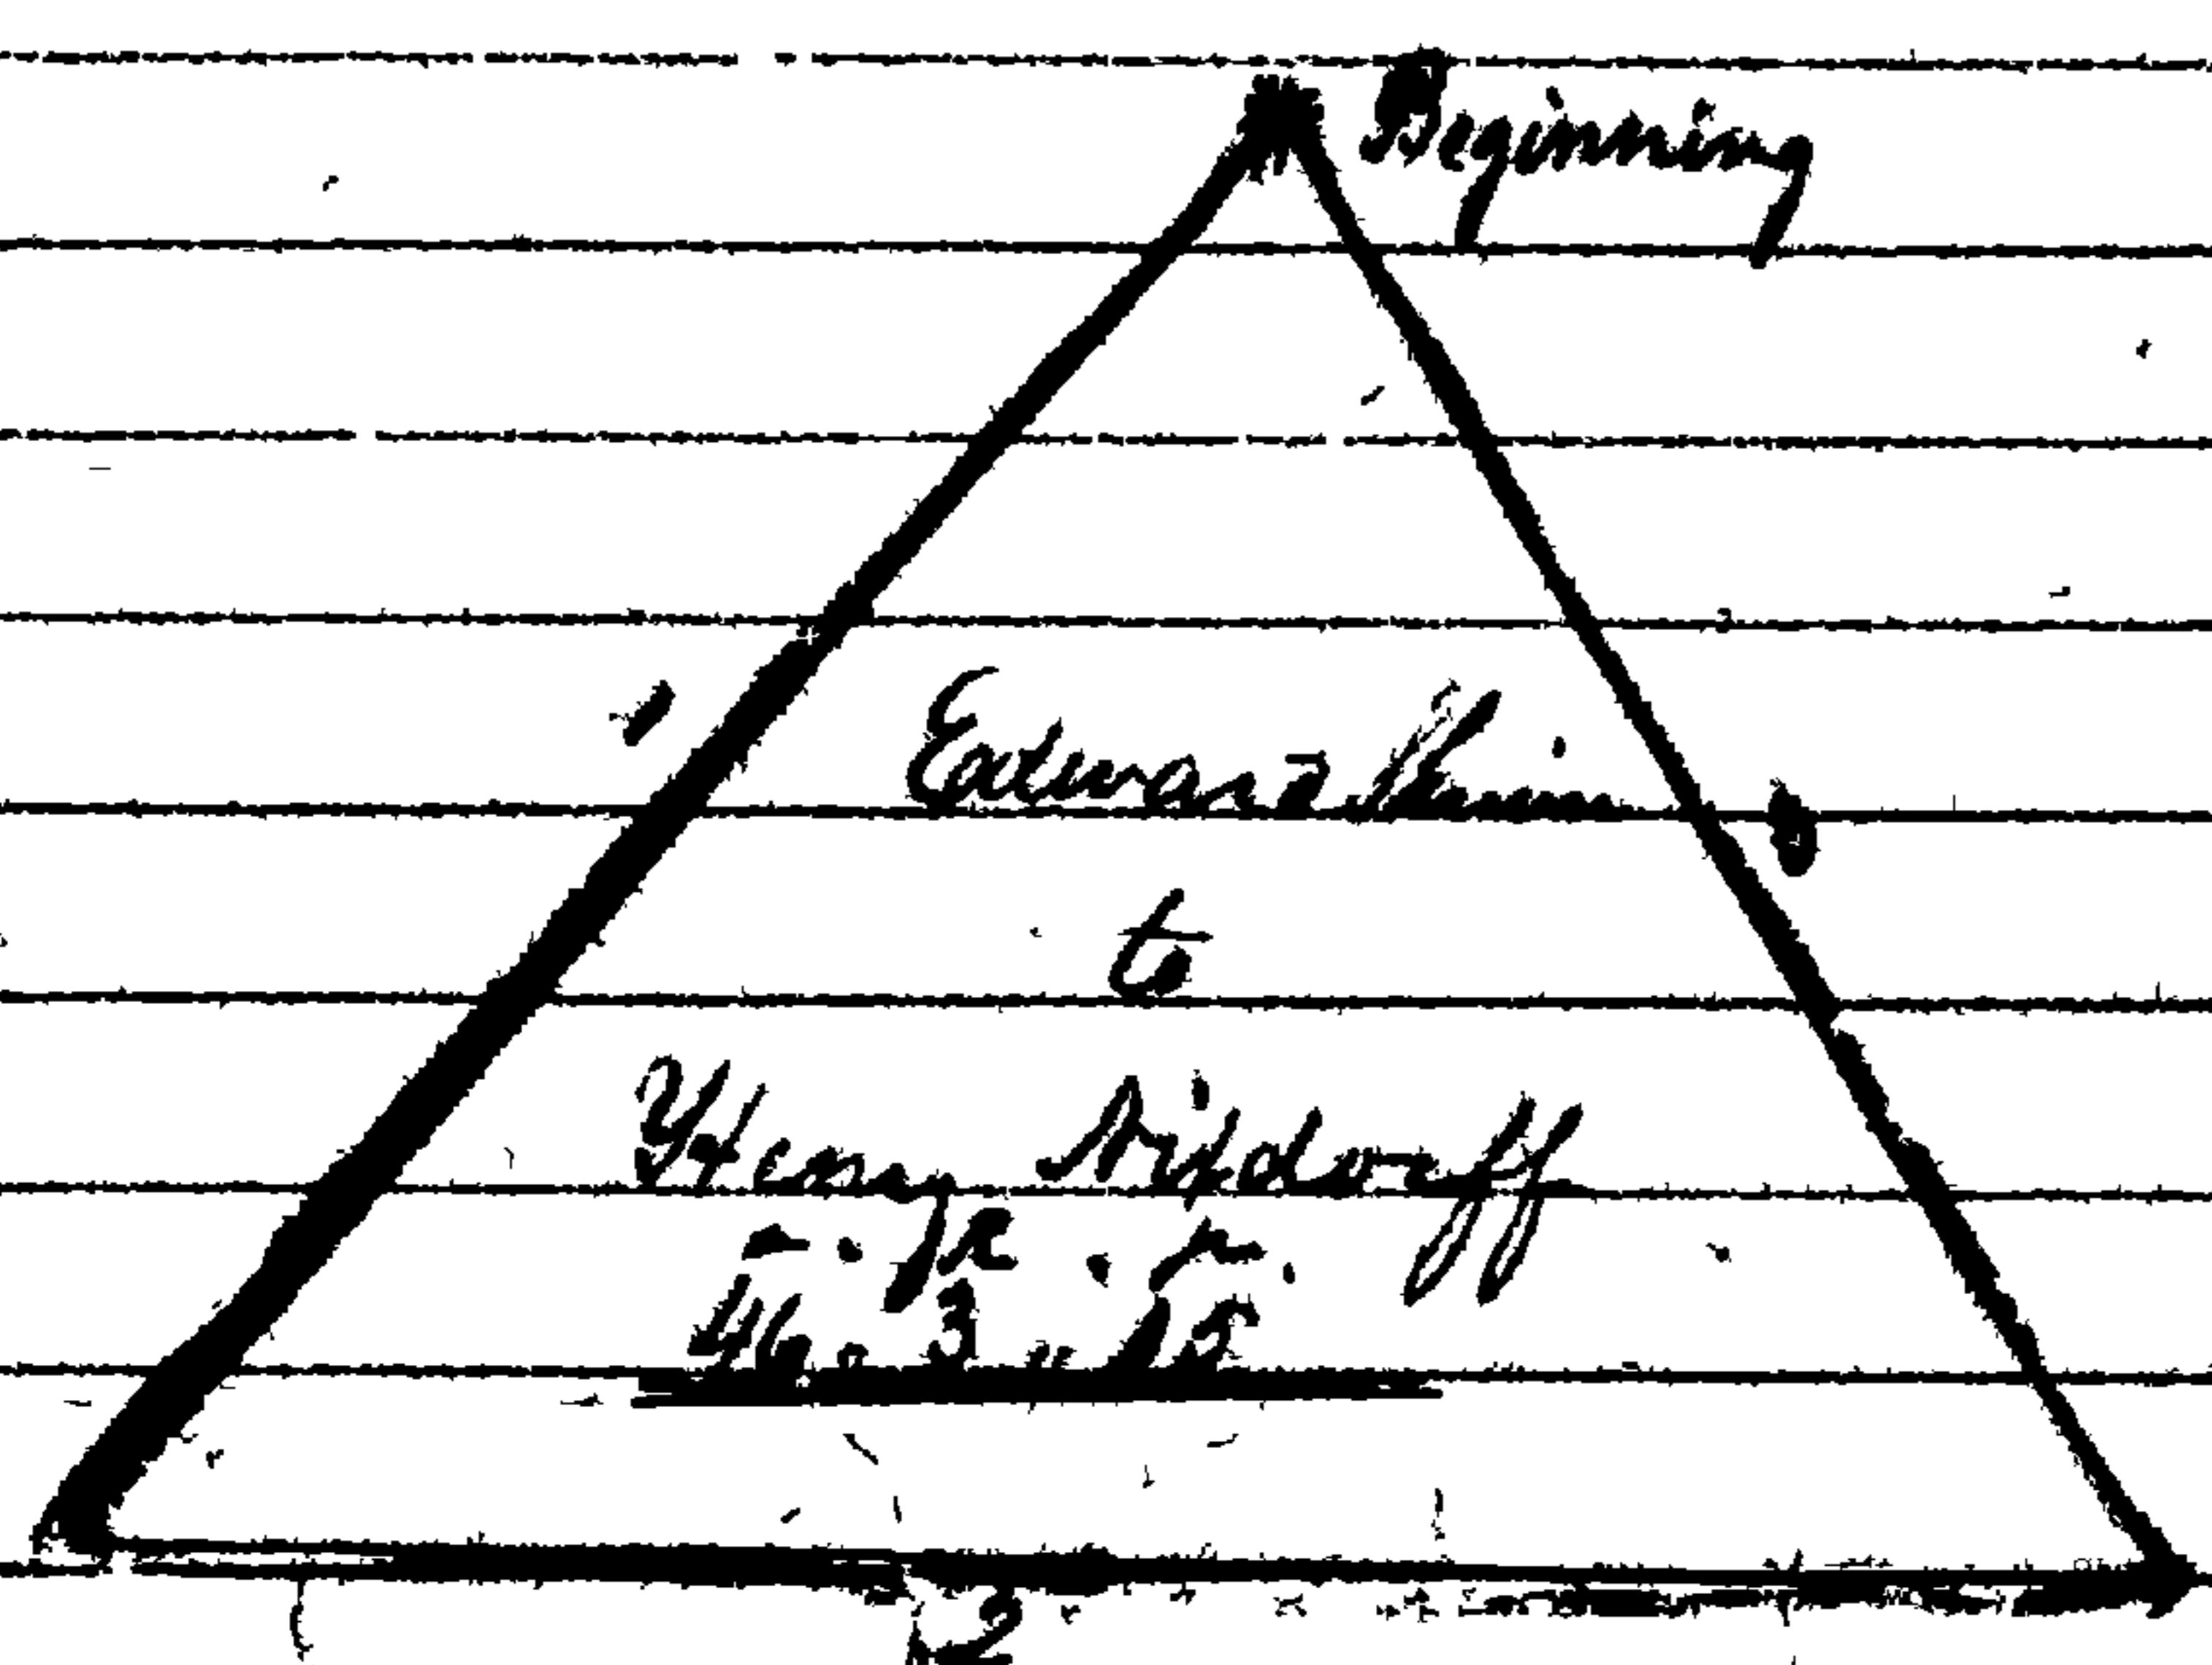 Beginning
1
Edward Shin
to
Henry Sixdorff
A. R. P.
46 " 3 " 15
2